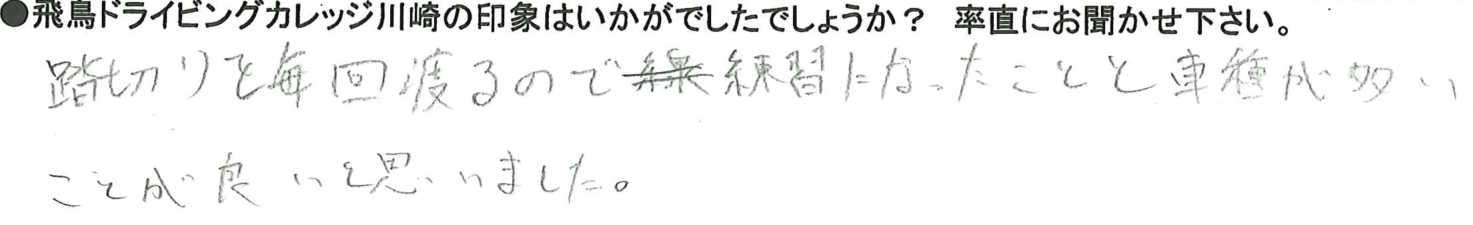 ●飛鳥ドライビングカレッジ川崎の印象はいかがでしたでしょうか？ 率直にお聞かせ下さい。
踏切りを毎回渡るので練習になったことと車種が多い
ことが良いと思いました。